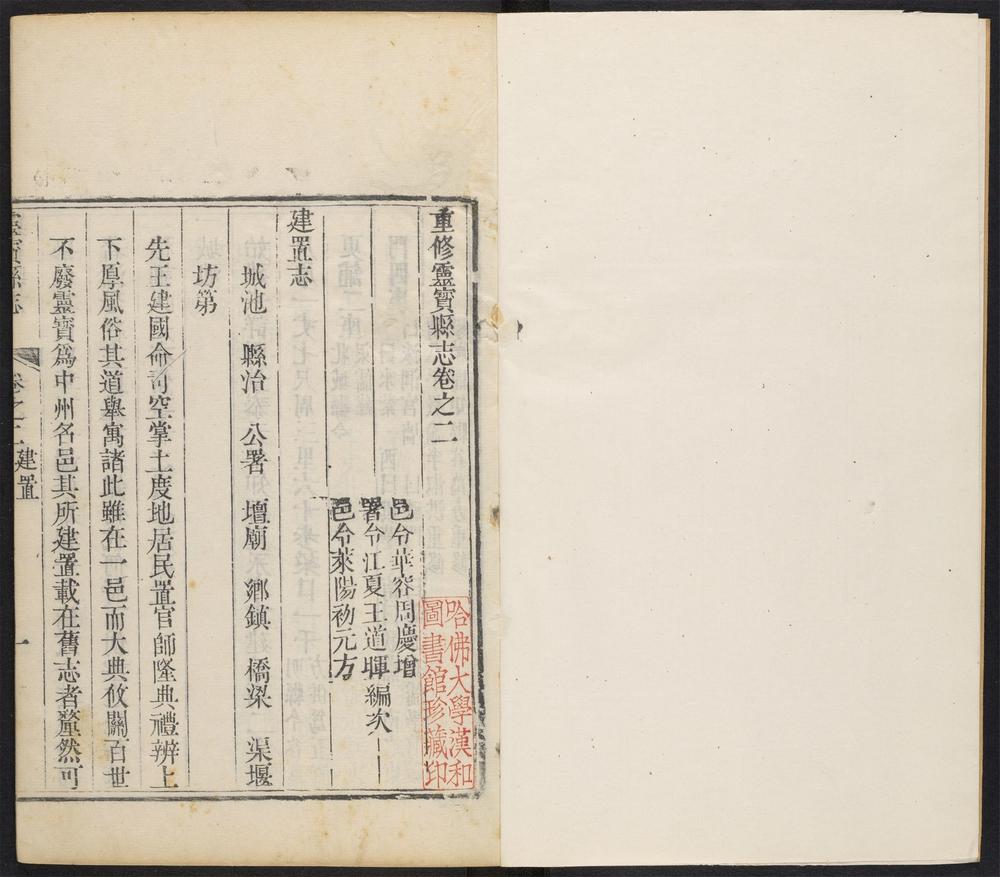 重修靈寳縣志卷之二
邑令華容周慶增
署令江夏王道暉編次
邑令萊陽初元方
建置志
城池 縣治 公署 壇廟 鄉鎮 橋梁 渠堰
坊第
先王建國命司空掌土度地居民置官師隆典禮辨上
下厚風俗其道舉寓諸此雖在一邑而大典攸關百世
不廢靈寳爲中州名邑其所建置載在舊志者釐然可
靈寳縣志 卷之二 建置 一
哈佛大學漢和
圖書館珍藏印